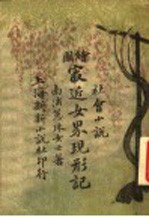 社會小說
繪圖
㝡近女界現形記
南浦蕙珠女士著
上海新新小說社印行